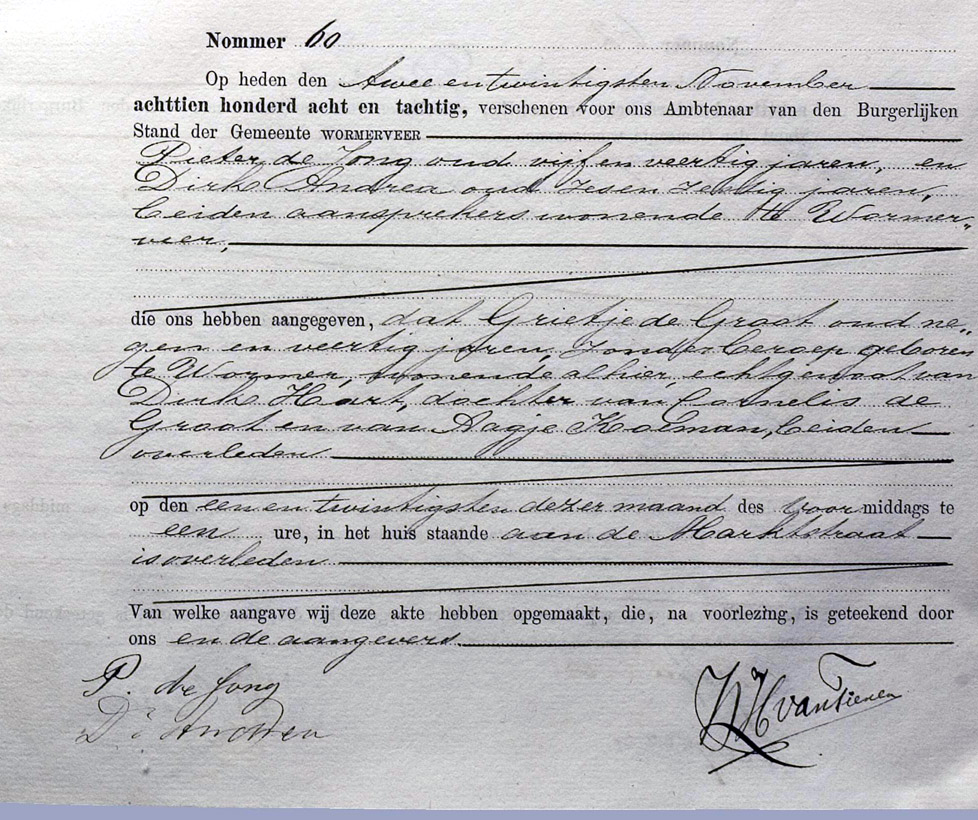 Nommer 60
Op heden den twee en twintigsten November
achttien honderd acht en tachtig, verschenen voor ons Ambtenaar van den Burgerlijken
Stand der Gemeente WORMERVEER
Pieter de Jong oud vijf en veertig jaren, en
Dirk Andrea oud zes en zestig jaren,
beiden aansprekers wonende te Wormer-
veer,
die ons hebben aangegeven, dat Grietje de Groot oud ne-
gen en veertig jaren, zonder beroep geboren
te Wormer, wonende alhier, echtgenoot van
Dirk Hart, dochter van Cornelis de
Groot en van Aagje Koeman, beiden
overleden
op den een en twintigsten dezer maand des voormiddags te
een ure, in het huis staande aan de Marktstraat
is overleden
Van welke aangave wij deze akte hebben opgemaakt, die, na voorlezing, is geteekend door
ons en de aangevers.
P. de Jong
Dk Andrea
van Tienen